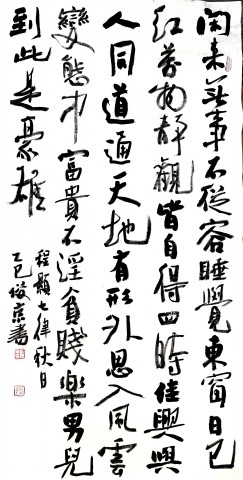 閑来無事不從容睡覺東窗日已
紅萬物靜觀皆自得四時佳興與
人同道通天地有形外思入風雲
變態中富貴不淫貧賤樂男兒
到此是豪雄
程顥七律秋日
乙巳俊京書